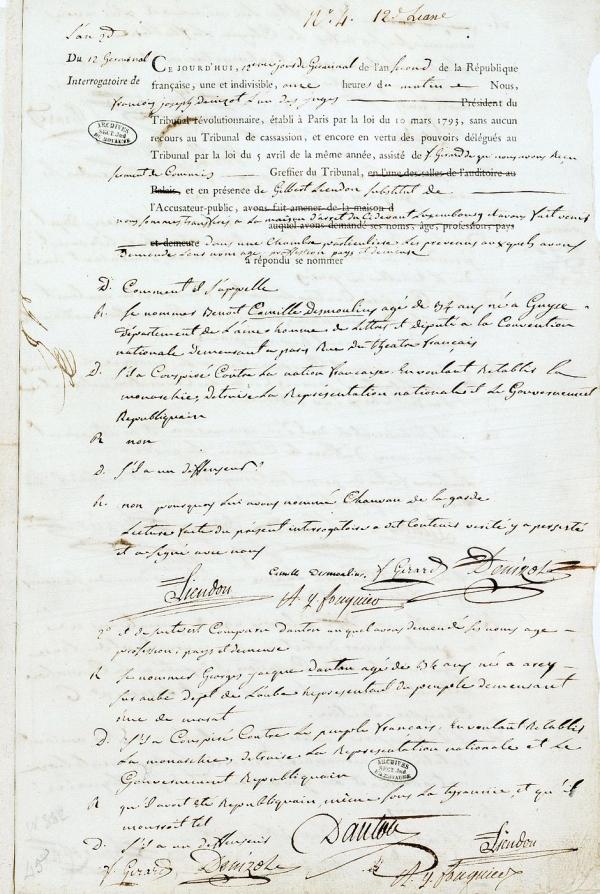 N° 4. 12e Liasse
L'an 2d
Du 12 Germinal CE JOURD'HUI, 12eme jour de Germinal de l'an second de la République
Interrogatoire de française, une et indivisible, onze heures du matin Nous,
françois joseph Denizot l'un des juges Président du
Tribunal révolutionnaire, établi à Paris par la loi du 10 mars 1793, sans aucun
recours au Tribunal de cassassion, et encore en vertu des pouvoirs délégués au
Tribunal par la loi du 5 avril de la même année, assisté de f Girard
serment de Commis Greffier du Tribunal, en l'une des salles de l'auditoire au
Palais, et en présence de Gilbert Liendon substitut de
l'Accusateur-public, avons fait amener de la maison d
nous sommes transferes a la maison d'arret du Cydevant Luxembourg et avons fait venir
auquel avons demandé ses noms, âge, profession, pays
et demeure dans une Chambre particuliere Les prevenus auxquels avons
demandé Leurs nom age, profession pays et demeure
à répondu se nommer
ARCHIVES
SECT. Jud
DU ROYAUME
D. Comment il s'appelle
R. se nommer Benoit Camille Desmoulins agé de 34 ans né a Guyse
Departement de L'aine homme de Lettres et deputé a la Convention
nationale demeurant a paris Rue du theatre français
D. s'il a Conspiré Contre La nation française En voulant Retablir la
monarchie, detruire La Representation nationale et Le Gouvernement
Republiquain
R non
D. s'il a un deffenseur?
R. non pourquoi lui avons nommé Chauvau de la garde
Lecture faite du présent interrogatoire a dit Contenir verité y a persisté
et a signé avec nous
Camille Desmoulins f Girard Denizot
Liendon A. q. fouquier
2° et desuite est Comparu danton auquel avons demandé ses noms age
profession, pays et demeure
R se nommer Georges jacque danton agé de 34 ans né a arcy
sur aube dept. de Laube Representant du peuple demeurant
Rue de marat
D. s'il a Conspiré Contre Le peuple français En voulant Retablir
La monarchie, detruire La Representation nationale et Le
Gouvernement Republiquain
ARCHIVES
SECT. Jud
DU ROYAUME
R qu'il avoit été Republiquain même sous La tyrannie et qu'il
mourroit tel
D. s'il a un deffenseur Danton Liendon
f Girard Denizot A. q. fouquier